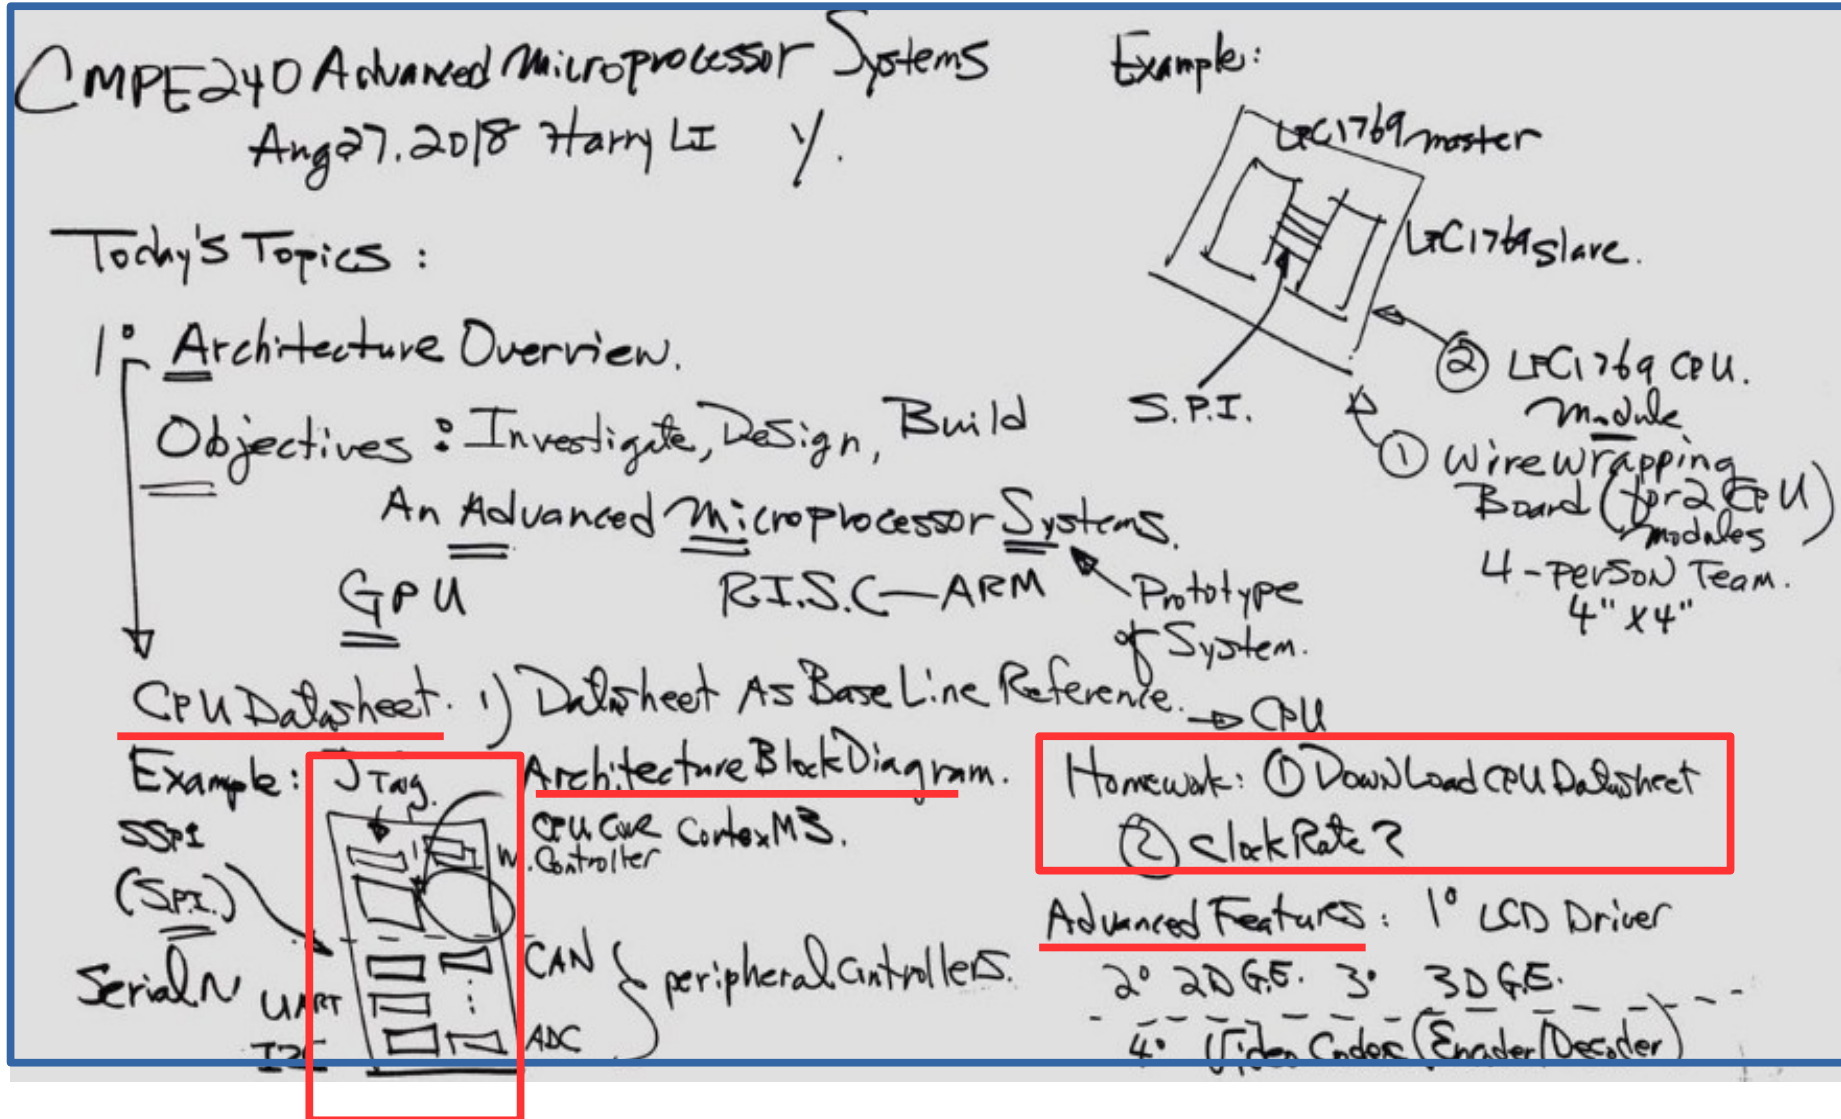 CMPE240 Advanced Microprocessor Systems
Aug 27. 2018 Harry LI y.
Today's Topics :
1° Architecture Overview.
Objectives : Investigate, Design, Build
An Advanced Microprocessor Systems.
GPU R.I.S.C — ARM
Prototype
of System.
CPU Datasheet. 1) Datasheet As Base Line Reference.
→ CPU
Example: JTag. Architecture Block Diagram.
SSPI
(SPI.)
CPU Core Cortex M3.
M. Controller
CAN
Serial N UART
peripheral Controllers.
I2C
ADC
Example:
LPC1769 master
LPC1769 slave.
S.P.I.
② LPC1769 CPU.
Module
① Wire Wrapping
Board (for 2 CPU)
modules
4-person Team.
4" x 4"
Homework: ① DownLoad CPU Datasheet
② Clock Rate ?
Advanced Features : 1° LCD Driver
2° 2D G.E. 3° 3D G.E.
4° Video Codec (Encoder/Decoder)